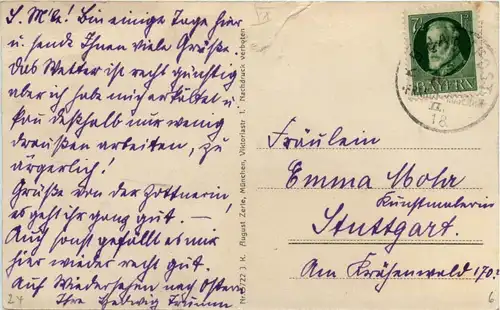 L. M a! Bin einige Tage hier
u. sende Ihnen viele Grüße.
Das Wetter ist recht günstig
aber ich habe mich erkältet u.
kan deßhalb nur wenig
draußen arbeiten, zu
ärgerlich!
Grüße von der Zottnerin,
es geht ihr ganz gut. —
Auch sonst gefällt es mir
hier wieder recht gut.
Auf Wiedersehen nach Ostern
Ihre Hedwig Trumm
24
Nr. 5722 J. K. August Zerle, München, Viktoriastr. 1. Nachdruck verboten
7½
BAYERN
18
Fräulein
Emma Mohr
Kunstmalerin
Stuttgart.
Am Krähenwald 170
6